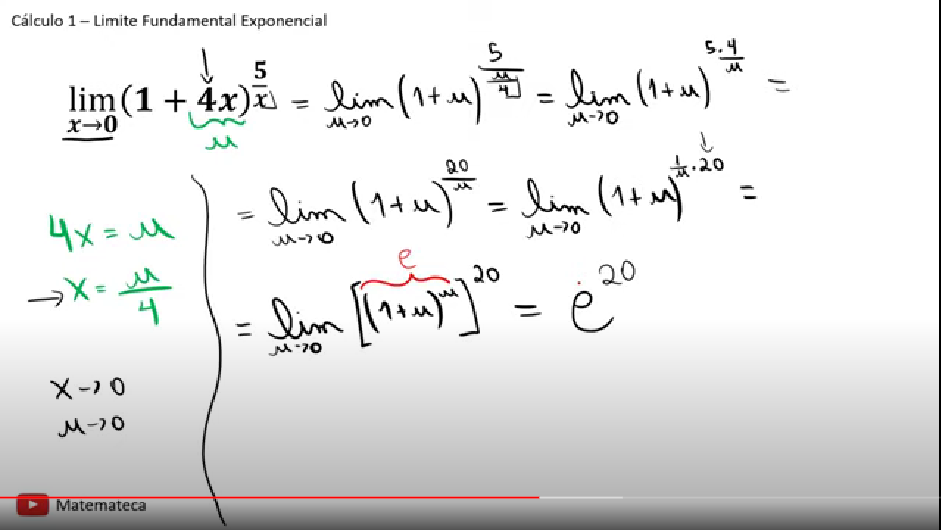 Cálculo 1 – Limite Fundamental Exponencial
lim x→0 (1 + 4x)^(5/x) = lim u→0 (1+u)^(5/(u/4)) = lim u→0 (1+u)^(5·4/u) =
u
= lim u→0 (1+u)^(20/u) = lim u→0 (1+u)^(1/u·20) =
4x = u
→ x = u/4
e
= lim u→0 [(1+u)^u]^20 = e^20
x→0
u→0
Matemateca